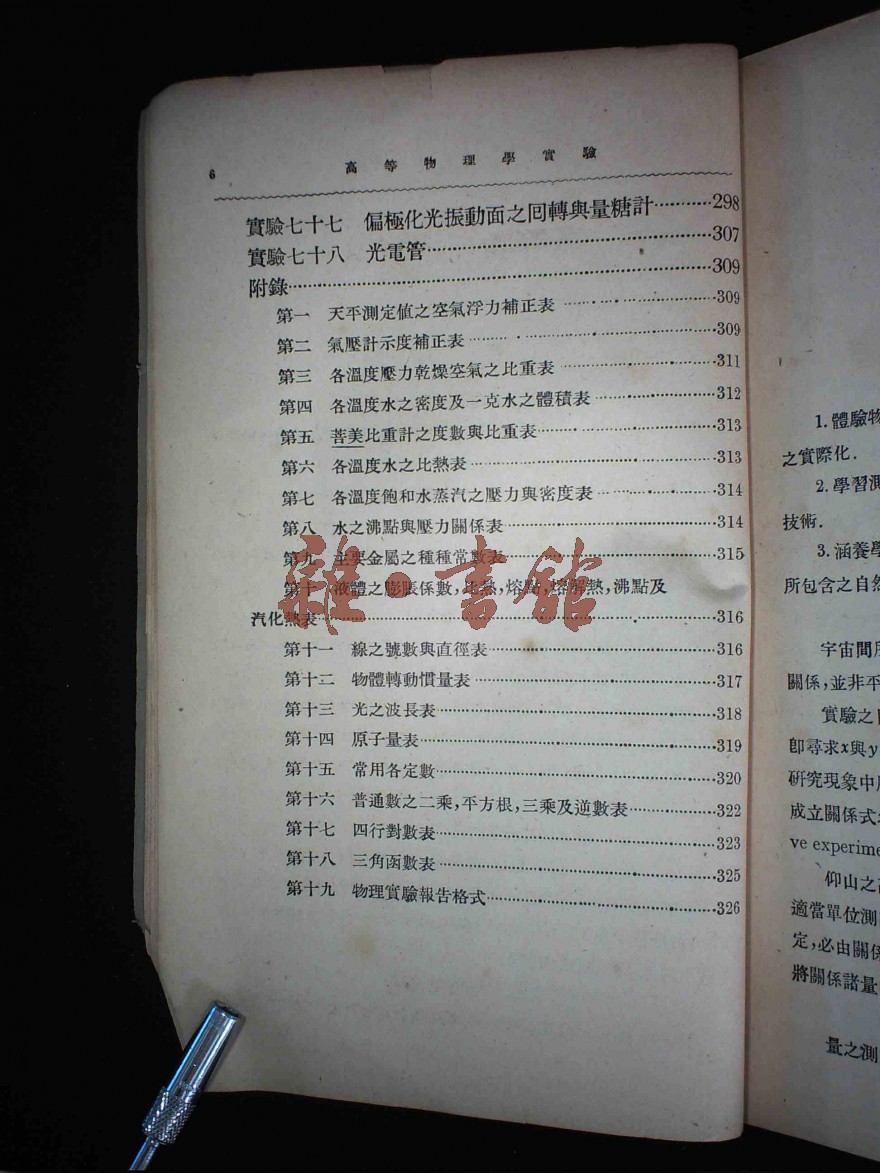 6 高等物理學實驗
實驗七十七 偏極化光振動面之回轉與量糖計············298
實驗七十八 光電管············307
附錄············309
第一 天平測定値之空氣浮力補正表············309
第二 氣壓計示度補正表············309
第三 各溫度壓力乾燥空氣之比重表············311
第四 各溫度水之密度及一克水之體積表············312
第五 菩美比重計之度數與比重表············313
第六 各溫度水之比熱表············313
第七 各溫度飽和水蒸汽之壓力與密度表············314
第八 水之沸點與壓力關係表············314
第九 主要金屬之種種常數表············315
第十 液體之膨脹係數,比熱,熔點,熔解熱,沸點及
汽化熱表············316
第十一 線之號數與直徑表············316
第十二 物體轉動慣量表············317
第十三 光之波長表············318
第十四 原子量表············319
第十五 常用各定數············320
第十六 普通數之二乘,平方根,三乘及逆數表············322
第十七 四行對數表············323
第十八 三角函數表············325
第十九 物理實驗報告格式············326
雜·書館
1. 體驗物
之實際化.
2. 學習測
技術.
3. 涵養學
所包含之自然
宇宙間所
關係,並非平
實驗之目
卽尋求x與y
硏究現象中
成立關係式
ve experime
仰山之高
適當單位測
定,必由關係
將關係諸量
量之測